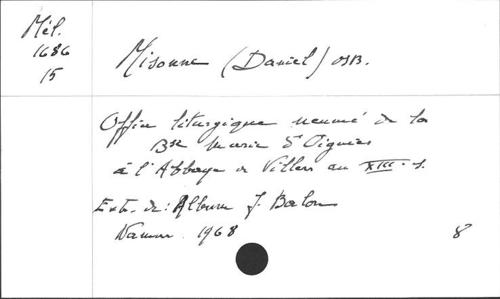 Mél.
1686
15
Misonne (Daniel) OSB.
Office liturgique neumé de la
Bse Marie d'Oignies
à l'Abbaye de Villers au XIIIe s.
Ext. de: Album J. Balon
Namur 1968
8